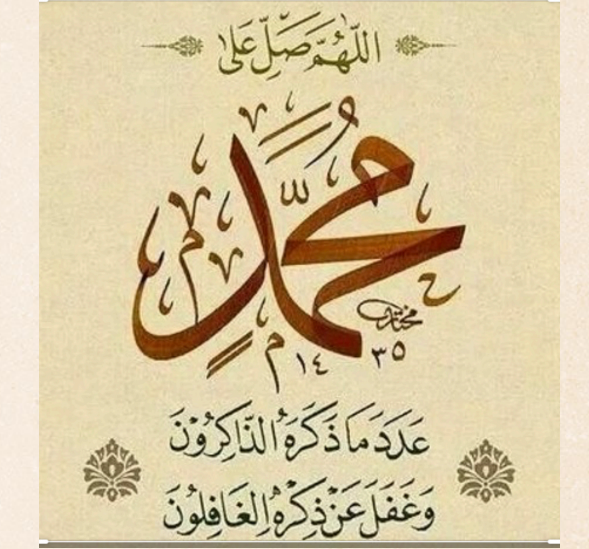 اللّٰهُمَّ صَلِّ عَلٰى
مُحَمَّدٍ
١٤٣٥
عَدَدَ مَا ذَكَرَهُ الذَّاكِرُوْنَ
وَغَفَلَ عَنْ ذِكْرِهِ الْغَافِلُونَ